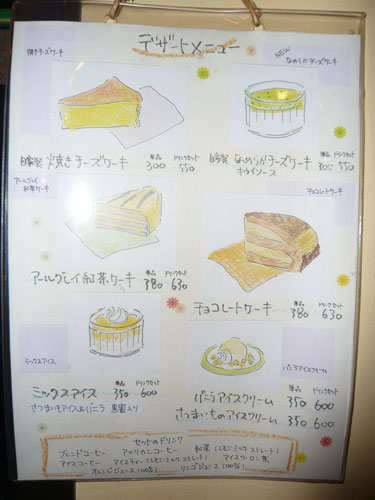 デザートメニュー
焼きチーズケーキ
NEW
なめらかチーズケーキ
単品 ドリンクセット
自家製 焼きチーズケーキ 300 550
単品 ドリンクセット
自家製 なめらかチーズケーキ 300 550
キウイソース
アールグレイ
紅茶ケーキ
チョコレートケーキ
単品 ドリンクセット
アールグレイ紅茶ケーキ 380 630
単品 ドリンクセット
チョコレートケーキ 380 630
ミックスアイス
バニラアイスクリーム
単品 ドリンクセット
ミックスアイス 350 600
さつまいもアイス&バニラ 黒蜜入り
単品 ドリンクセット
バニラアイスクリーム 350 600
さつまいものアイスクリーム 350 600
セットのドリンク
ブレンドコーヒー アメリカンコーヒー 紅茶(レモン・ミルク・ストレート)
アイスコーヒー アイスティー(レモン・ミルク・ストレート) アイスウーロン茶
オレンジジュース(100%) リンゴジュース(100%)